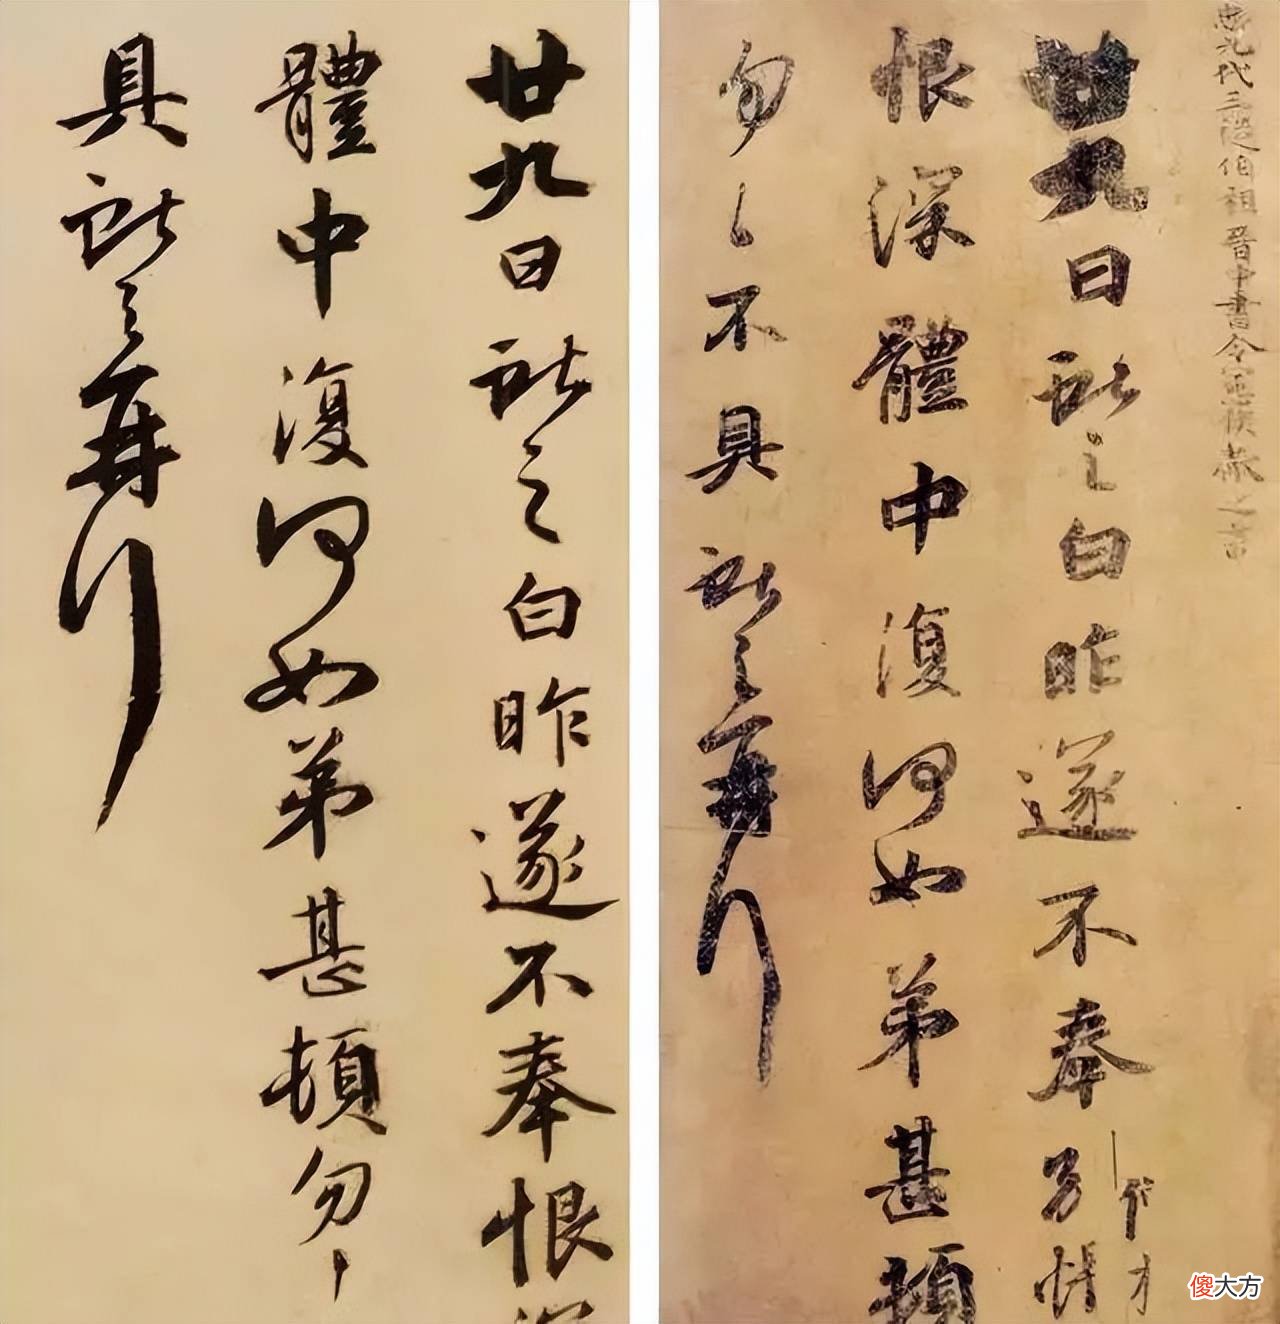 九代三從伯祖晉中書令憲侯獻之書
廿九日獻之白昨遂不奉別悵
恨深體中復何如弟甚頓
勿〻不具獻之再拜
廿九日獻之白昨遂不奉恨深
體中復何如弟甚頓勿〻
具獻之再拜
傻大方